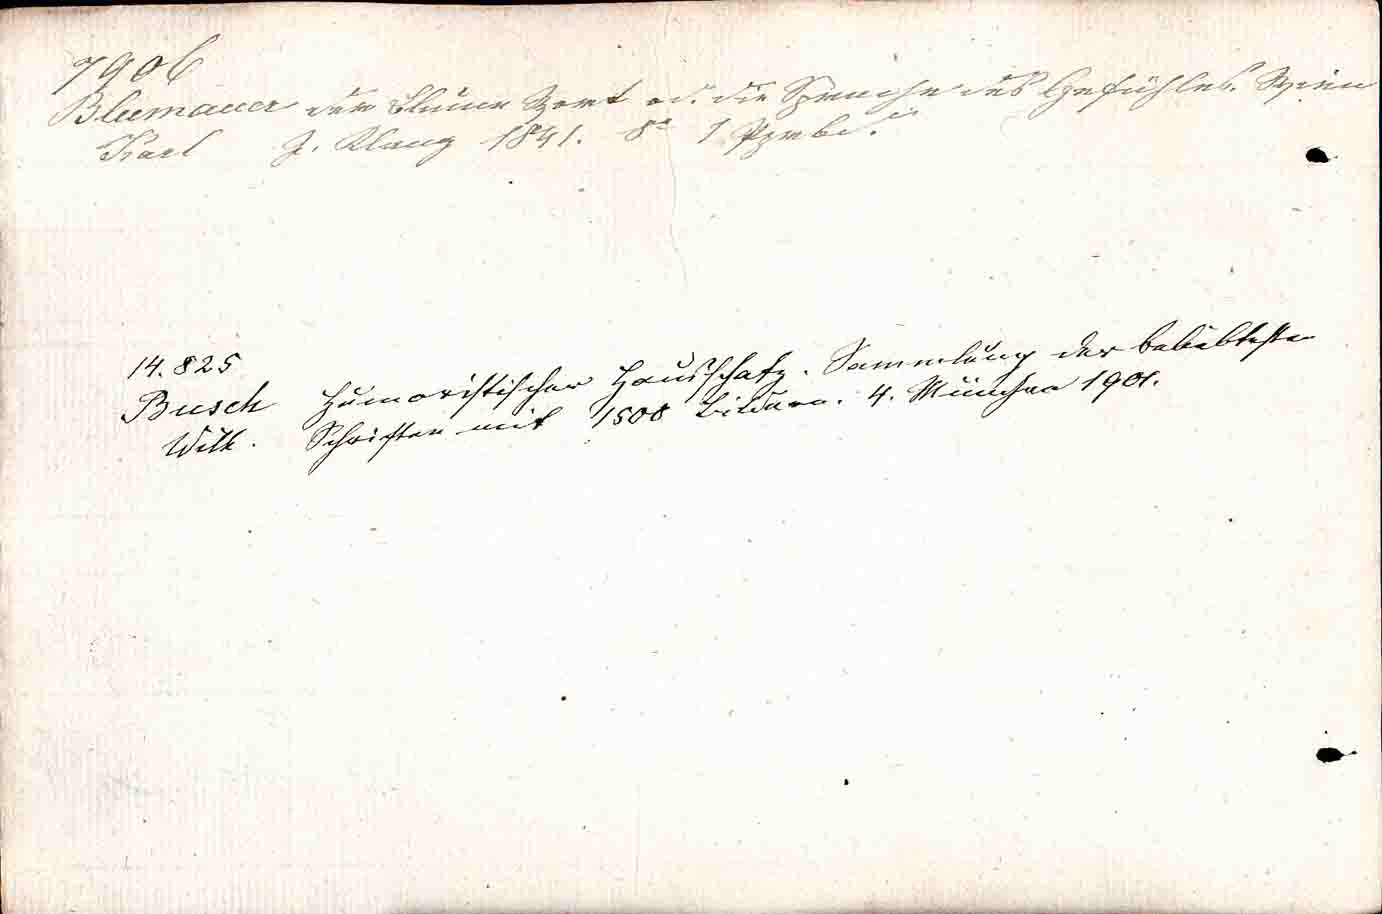 7906
Blumauer der kleine Poet od. die Sprache des Gefühles. Wien
Karl J. Klang 1841. 8° 1 Ppbd.
14.825
Busch Humoristischer Hausschatz. Sammlung der beliebtesten
Wilh. Schriften mit 1500 Bildern. 4. München 1901.